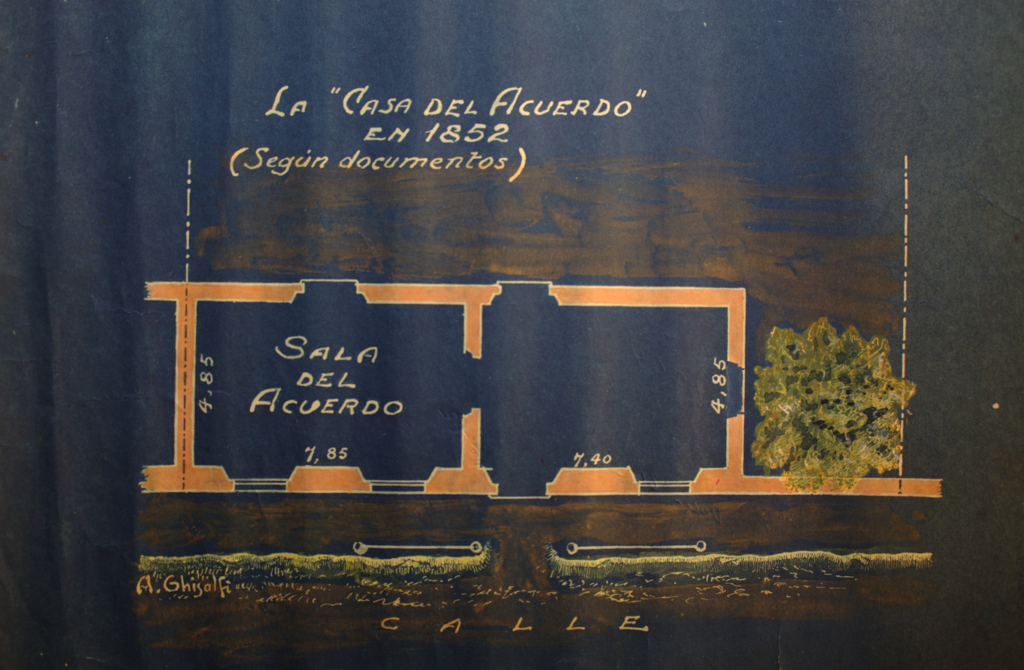 LA "CASA DEL ACUERDO"
EN 1852
(Según documentos)
SALA
DEL
ACUERDO
4,85
4,85
7,85
7,40
A. Ghisolfi
CALLE